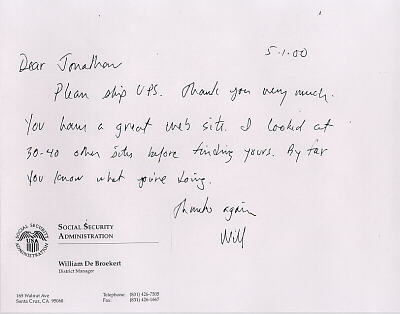 5-1-00
Dear Jonathan
Please ship UPS. Thank you very much.
You have a great web site. I looked at
30-40 other sites before finding yours. By far
you know what you're doing.
Thanks again
Will
SOCIAL SECURITY
USA
ADMINISTRATION
SOCIAL SECURITY
ADMINISTRATION
William De Broekert
District Manager
169 Walnut Ave
Santa Cruz, CA 95060
Telephone: (831) 426-7305
Fax: (831) 426-1667